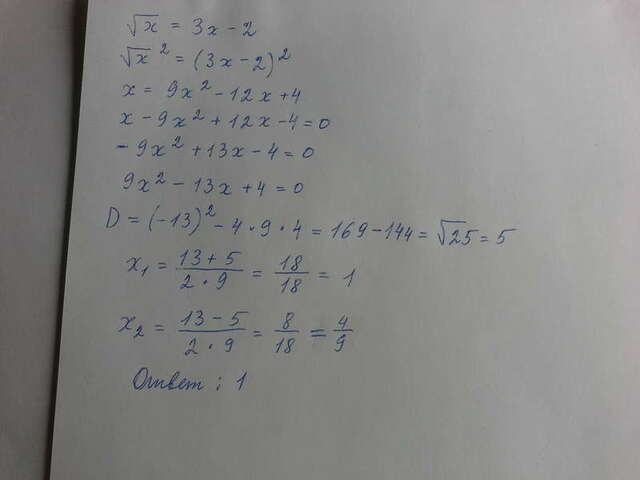 √x = 3x - 2
√x² = (3x - 2)²
x = 9x² - 12x + 4
x - 9x² + 12x - 4 = 0
- 9x² + 13x - 4 = 0
9x² - 13x + 4 = 0
D = (-13)² - 4 · 9 · 4 = 169 - 144 = √25 = 5
x₁ = (13 + 5)/(2 · 9) = 18/18 = 1
x₂ = (13 - 5)/(2 · 9) = 8/18 = 4/9
Ответ : 1